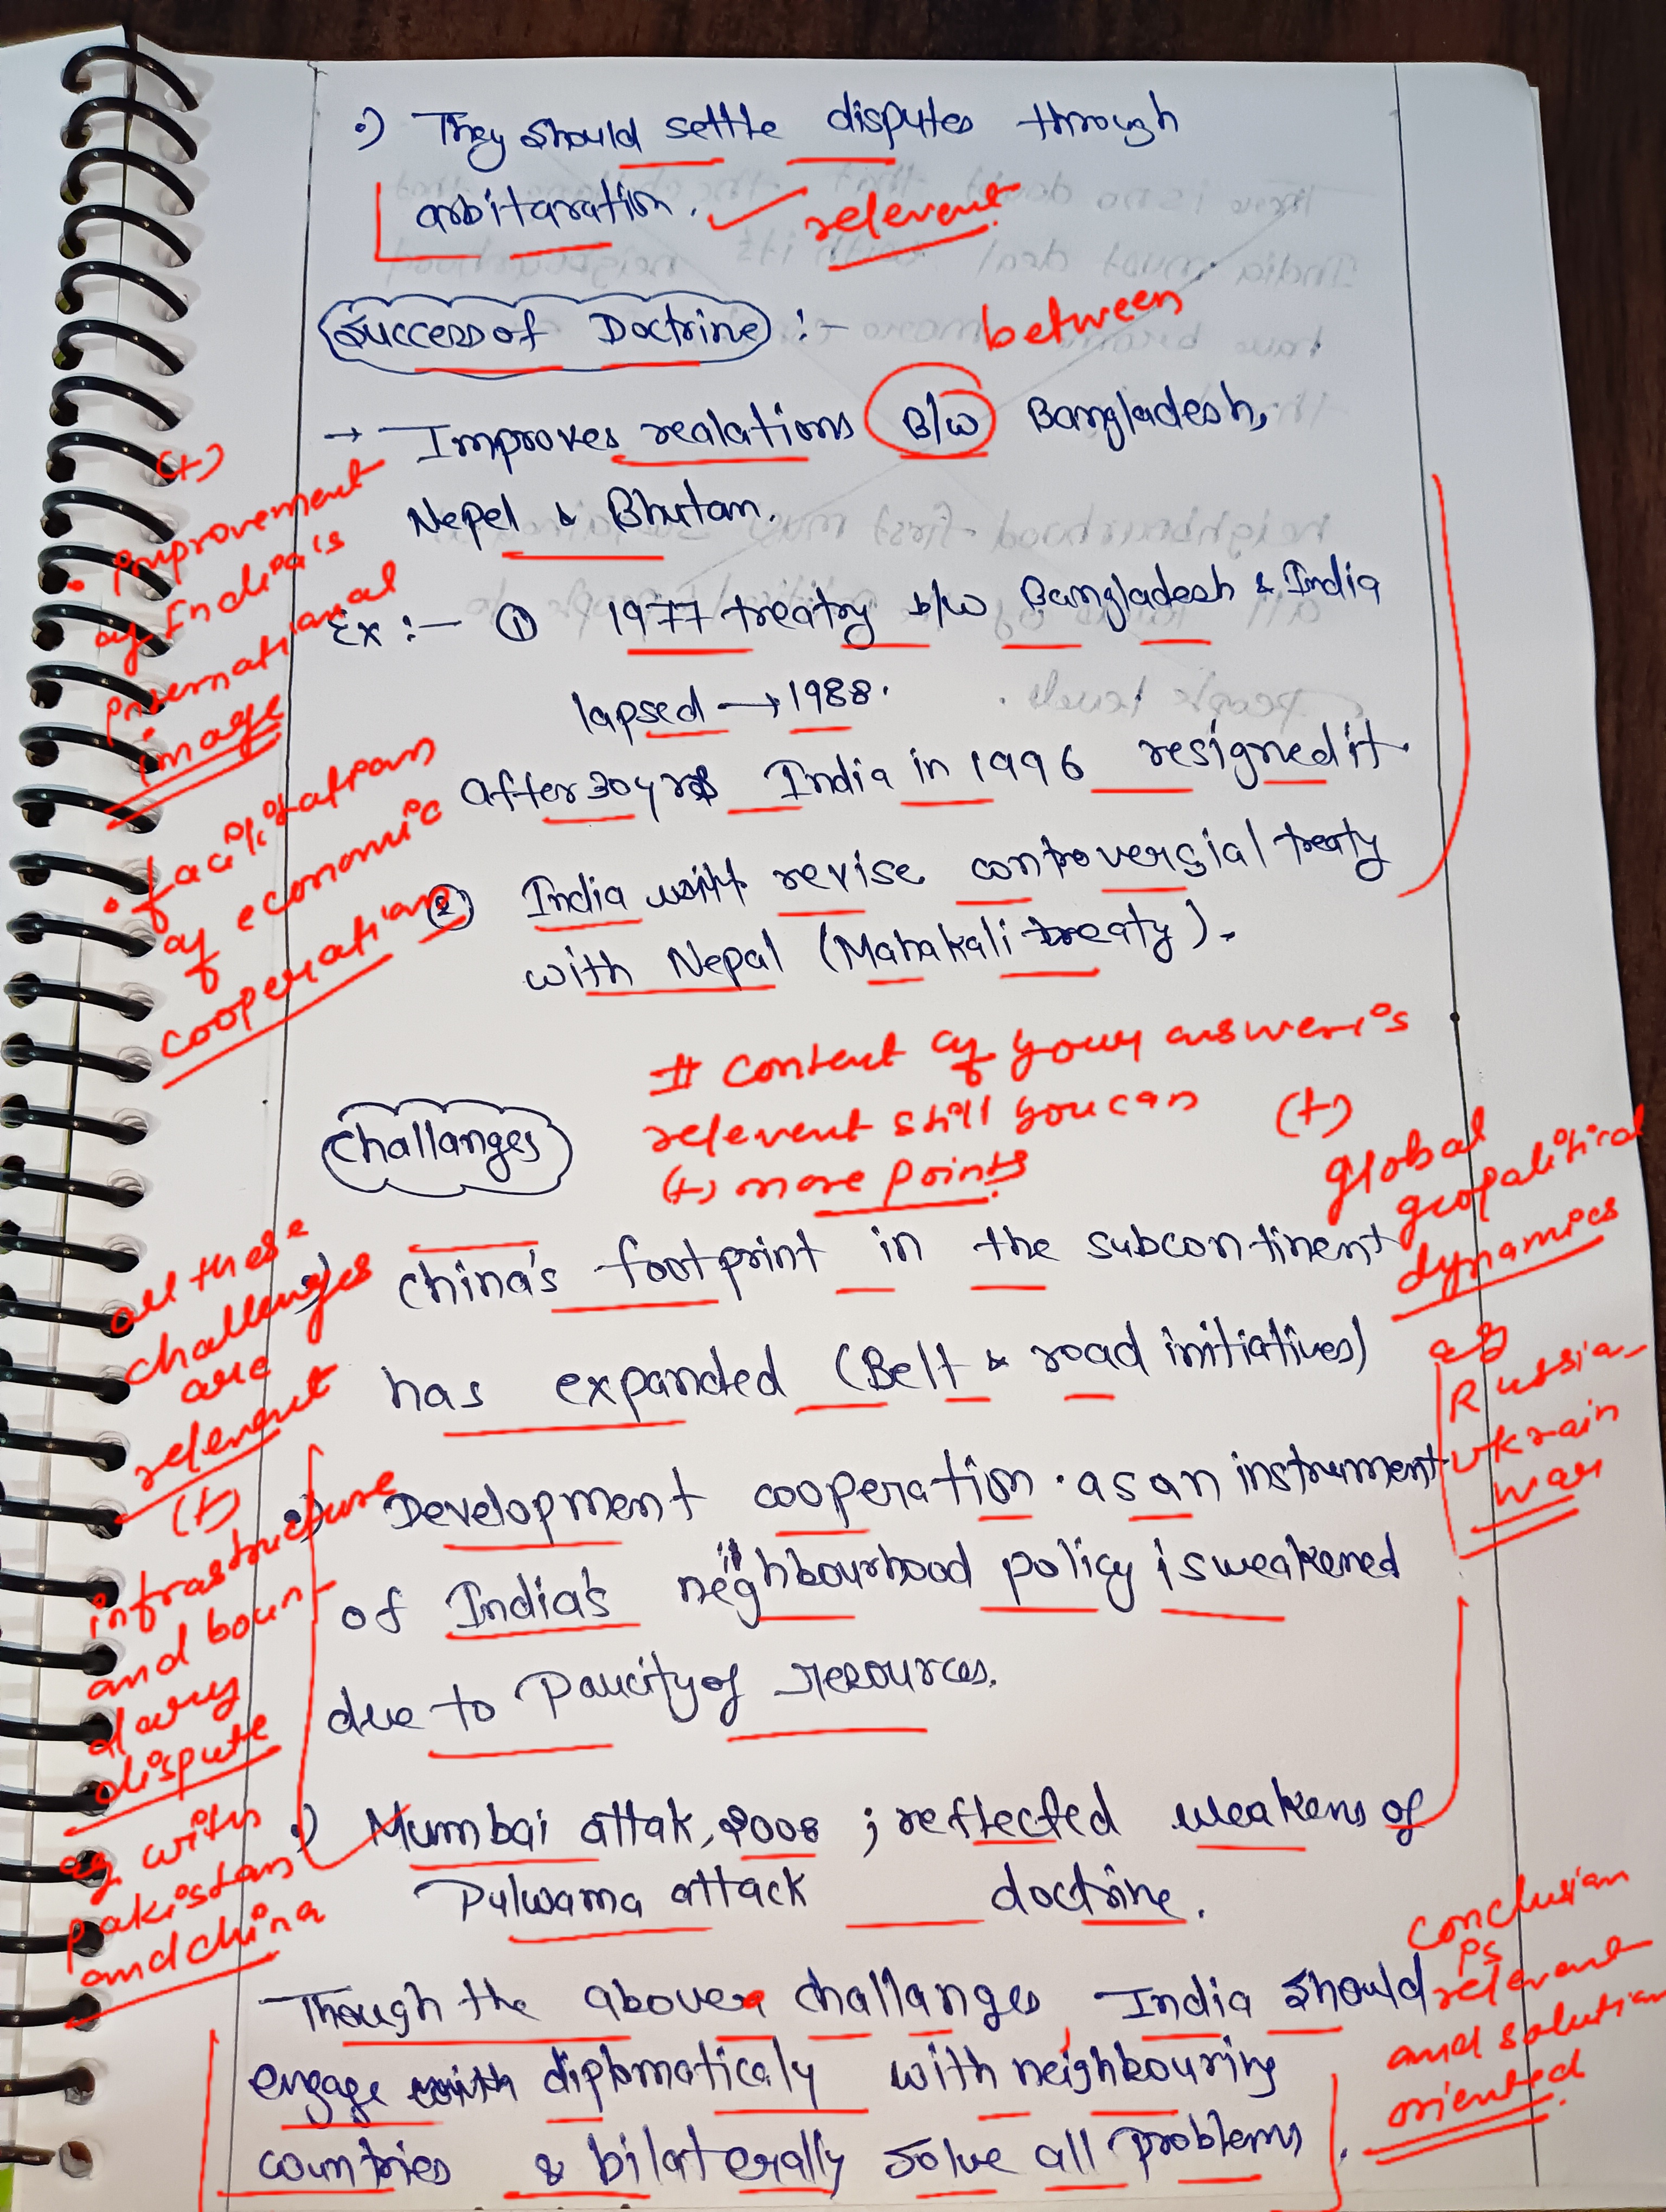 •) They should settle disputes through
arbitaration. relevent
Success of Doctrine :-
between
→ Improves realations B/w Bangladesh,
Nepel & Bhutan.
(+)
• improvement
of India's
international
image
Ex :- ① 1977 treatry b/w Bangladesh & India
lapsed → 1988.
after 30 yrs India in 1996 resigned it.
• facilitation
of economic
cooperation
② India revise controversial treaty
with Nepal (Mahakali treaty).
# content of your answer is
relevent still you can
(+) more points
Challanges
(+)
global
geopolitical
dynamics
eg
Russia-
ukrain
war
all these
challenges
are
relevent
•) China's footprint in the subcontinent
has expanded (Belt & road initiatives)
(+)
infrastructure
and boun-
dary
dispute
eg. with
pakistan
and china
•) Development cooperation as an instrument
of India's neighbourhood policy is weakened
due to Paucity of resources.
•) Mumbai attak, 2008 ; reflected weakens of
Pulwama attack doctrine.
conclusion
is
relevent
and solution
oriented
Though the above challanges, India should
engage with diplomaticaly with neighbouring
countries & bilaterally solve all problems.